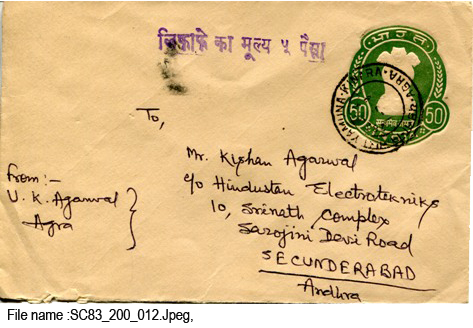 लिफाफे का मूल्य ५ पैसा
भारत
50 50
To,
Mr. Kishan Agarwal
c/o Hindustan Electrotekniks
10, Srinath Complex
Sarojini Devi Road
SECUNDERABAD
Andhra
From:-
U. K. Agarwal
Agra
File name :SC83_200_012.Jpeg,